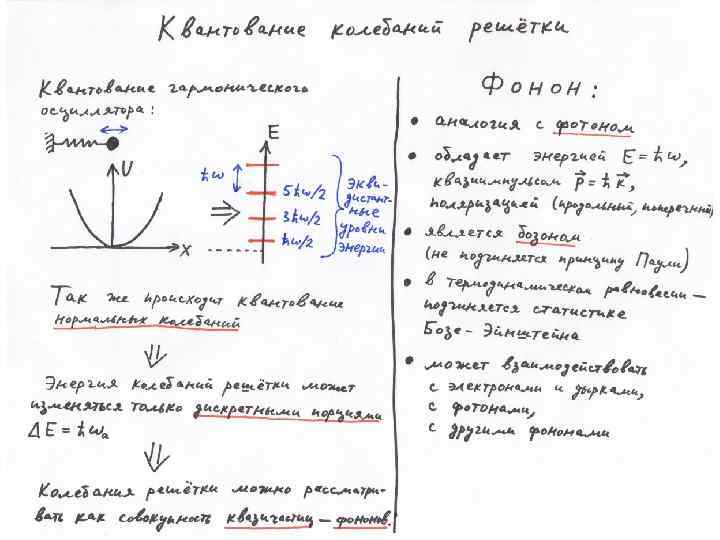 Квантование колебаний решётки
Квантование гармонического
осциллятора:
U
x
E
ħω
5ħω/2
3ħω/2
ħω/2
Экви-
дистант-
ные
уровни
энергии
Так же происходит квантование
нормальных колебаний
Энергия колебаний решётки может
изменяться только дискретными порциями
ΔE = ħωₐ
Колебания решётки можно рассматри-
вать как совокупность квазичастиц – фононов.
Фонон:
• аналогия с фотоном
• обладает энергией E = ħω,
квазиимпульсом p⃗ = ħk⃗,
поляризацией (продольный, поперечный)
• является бозоном
(не подчиняется принципу Паули)
• в термодинамическом равновесии –
подчиняется статистике
Бозе-Эйнштейна
• может взаимодействовать
с электронами и дырками,
с фотонами,
с другими фононами